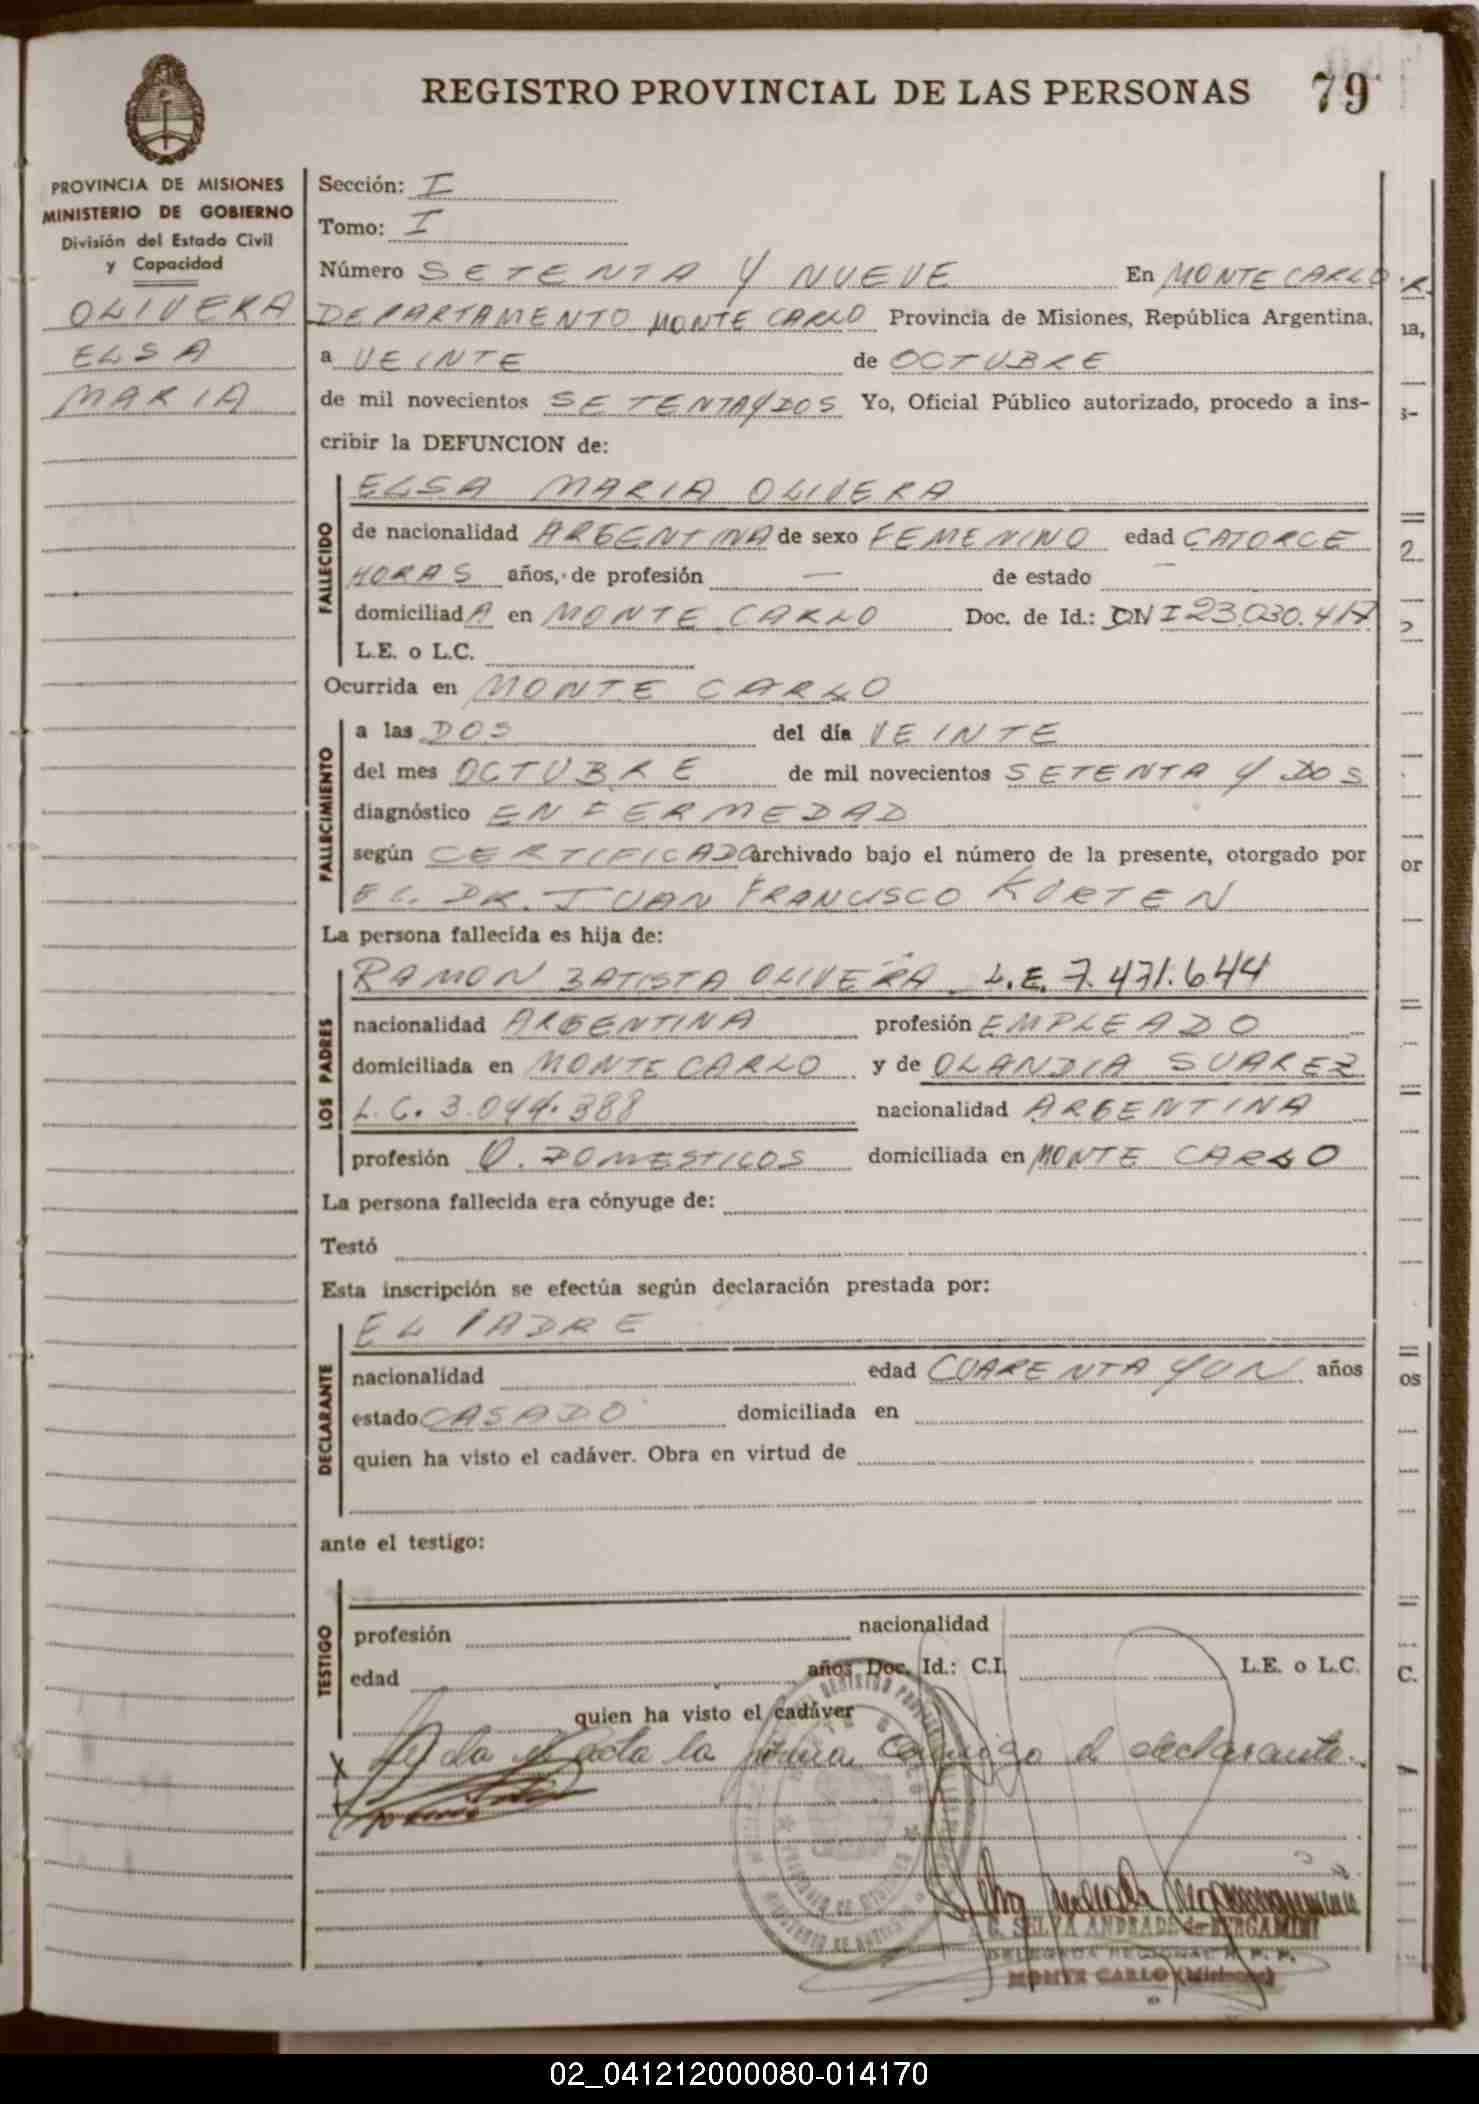 REGISTRO PROVINCIAL DE LAS PERSONAS 79
PROVINCIA DE MISIONES
MINISTERIO DE GOBIERNO
División del Estado Civil
y Capacidad
OLIVERA
ELSA
MARIA
Sección: I
Tomo: I
Número SETENTA Y NUEVE En MONTE CARLO
DEPARTAMENTO MONTE CARLO Provincia de Misiones, República Argentina,
a VEINTE de OCTUBRE
de mil novecientos SETENTA Y DOS Yo, Oficial Público autorizado, procedo a ins-
cribir la DEFUNCION de:
FALLECIDO
ELSA MARIA OLIVERA
de nacionalidad ARGENTINA de sexo FEMENINO edad CATORCE
HORAS años, de profesión — de estado —
domiciliadA en MONTE CARLO Doc. de Id.: DNI 23.030.417
L.E. o L.C.
Ocurrida en MONTE CARLO
FALLECIMIENTO
a las DOS del día VEINTE
del mes OCTUBRE de mil novecientos SETENTA Y DOS
diagnóstico ENFERMEDAD
según CERTIFICADO archivado bajo el número de la presente, otorgado por
EL DR. JUAN FRANCISCO KURTEN
La persona fallecida es hija de:
LOS PADRES
RAMON BATISTA OLIVERA L.E. 7.471.644
nacionalidad ARGENTINA profesión EMPLEADO
domiciliada en MONTE CARLO y de OLANDIA SUAREZ
L.C. 3.044.388 nacionalidad ARGENTINA
profesión Q. DOMESTICOS domiciliada en MONTE CARLO
La persona fallecida era cónyuge de:
Testó
Esta inscripción se efectúa según declaración prestada por:
DECLARANTE
EL PADRE
nacionalidad edad CUARENTA Y UN años
estado CASADO domiciliada en
quien ha visto el cadáver. Obra en virtud de
ante el testigo:
TESTIGO
profesión nacionalidad
edad años Doc. Id.: C.I. L.E. o L.C.
quien ha visto el cadáver
Leída el acta la firma conmigo el declarante.
C. SELVA ANDRADE de BERGAMINI
DELEGADA REGIONAL R. P. P.
MONTE CARLO (Misiones)
02_041212000080-014170